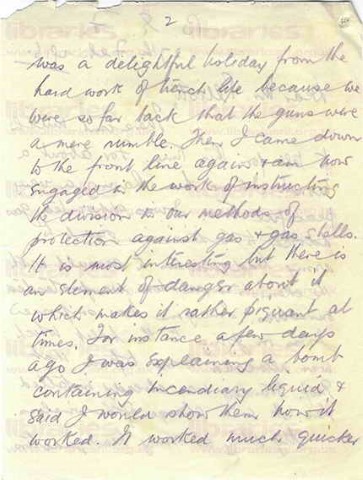 2
was a delightful holiday from the
hard work of trench life because we
were so far back that the guns were
a mere rumble. Then I came down
to the front line again & am now
engaged in the work of instructing
the division in our methods of
protection against gas & gas shells.
It is most interesting but there is
an element of danger about it
which makes it rather piquant at
times. For instance a few days
ago I was explaining a bomb
containing incendiary liquid &
said I would show them how it
worked. It worked much quicker